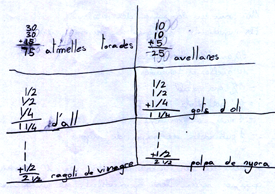 30
30
+15
75 atmelles torades
10
10
+5
25 avellanes
1/2
1/2
1/4
1 1/4 d'all
1/2
1/2
+1/4
1 1/4 gots d'oli
1
1
+1/2
2 1/2 ragoli de vinagre
1
1
+1/2
2 1/2 polpa de nyora